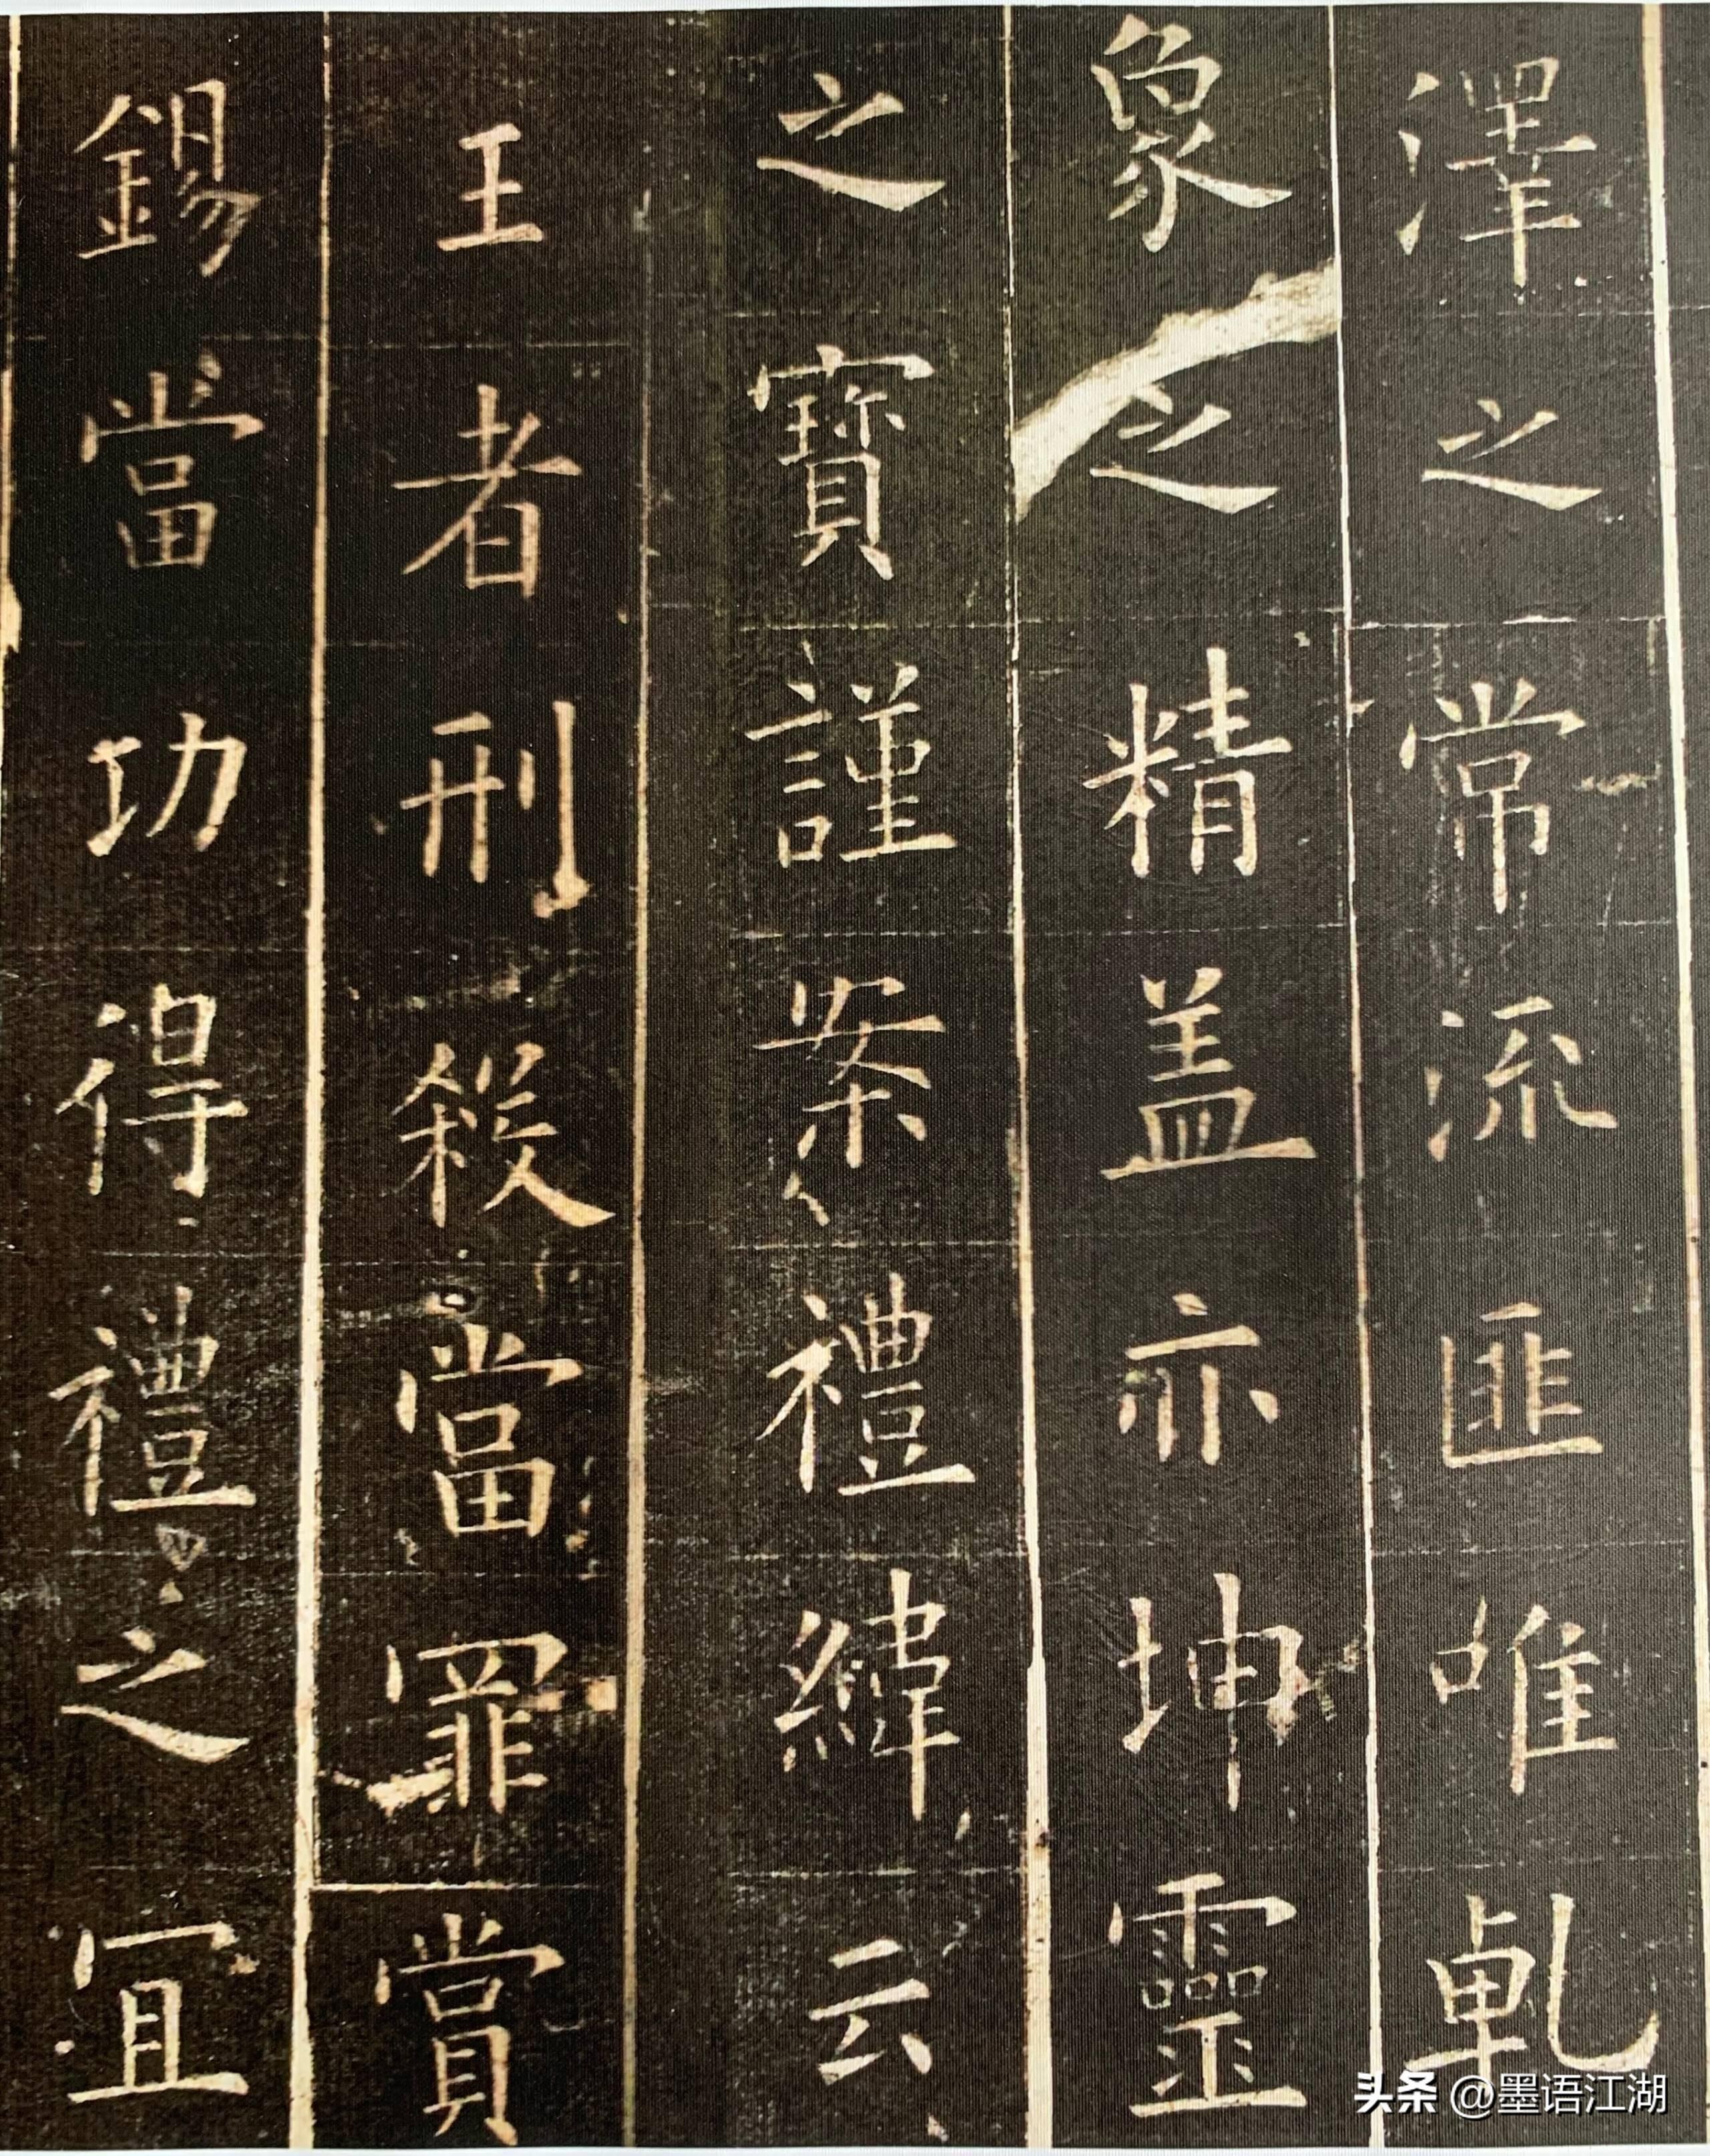 澤之常流匪唯乹
象之精盖亦坤靈
之寶謹案禮緯云
王者刑殺當罪賞
錫當功得禮之宜
头条 @墨语江湖